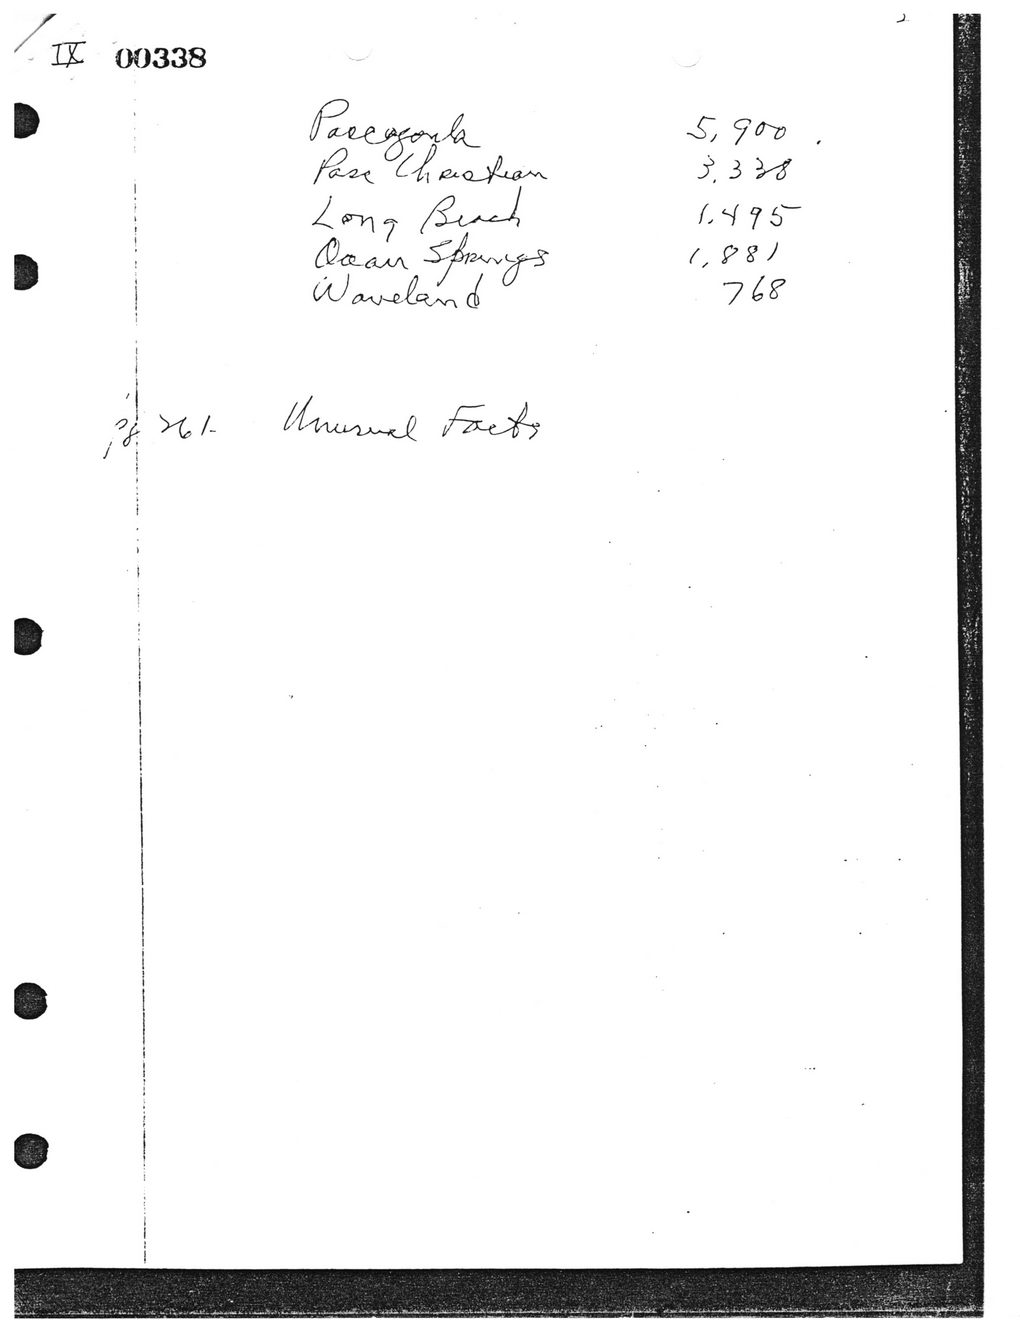 IX 00338
Pascagoula 5,900
Pass Christian 3,338
Long Beach 1,495
Ocean Springs 1,881
Waveland 768
pg 261- Unusual Facts